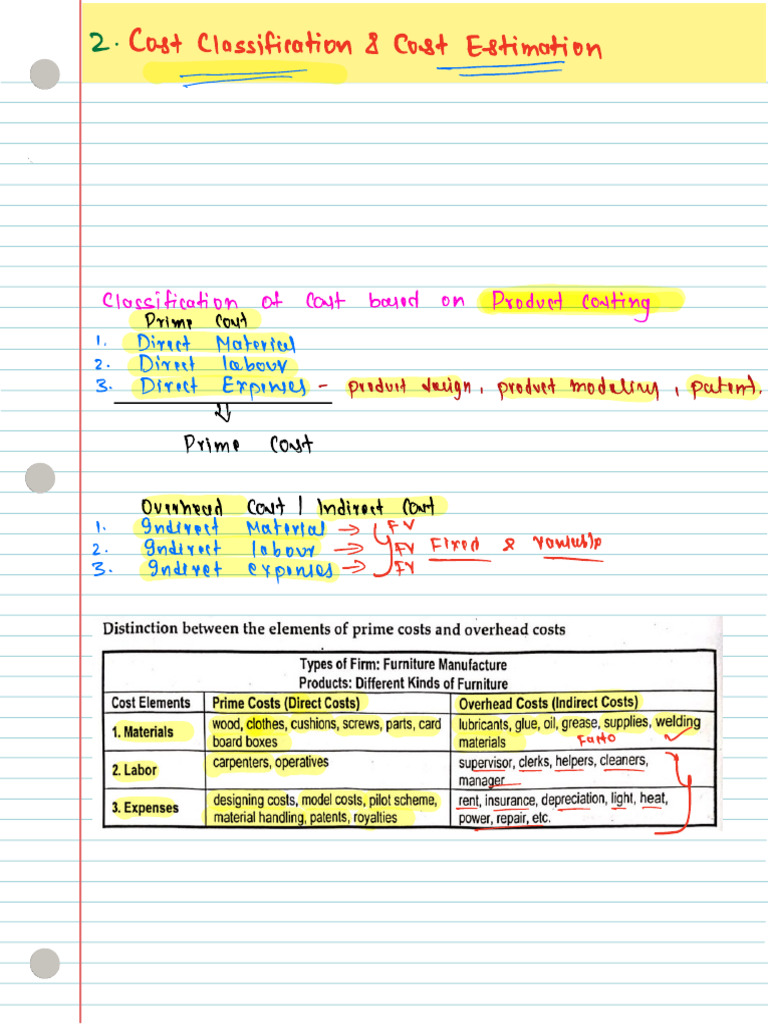 2. Cost Classification & Cost Estimation
Classification of Cost based on Product Costing
Prime Cost
1. Direct Material
2. Direct labour
3. Direct Expenses - product design, product modeling, patent.
Prime Cost
Overhead Cost | Indirect Cost
1. Indirect Material → FV
2. Indirect labour → FV Fixed & Variable
3. Indirect expenses → FV
Distinction between the elements of prime costs and overhead costs
Types of Firm: Furniture Manufacture
Products: Different Kinds of Furniture
Cost Elements Prime Costs (Direct Costs) Overhead Costs (Indirect Costs)
1. Materials wood, clothes, cushions, screws, parts, card board boxes lubricants, glue, oil, grease, supplies, welding materials
2. Labor carpenters, operatives supervisor, clerks, helpers, cleaners, manager
3. Expenses designing costs, model costs, pilot scheme, material handling, patents, royalties rent, insurance, depreciation, light, heat, power, repair, etc.